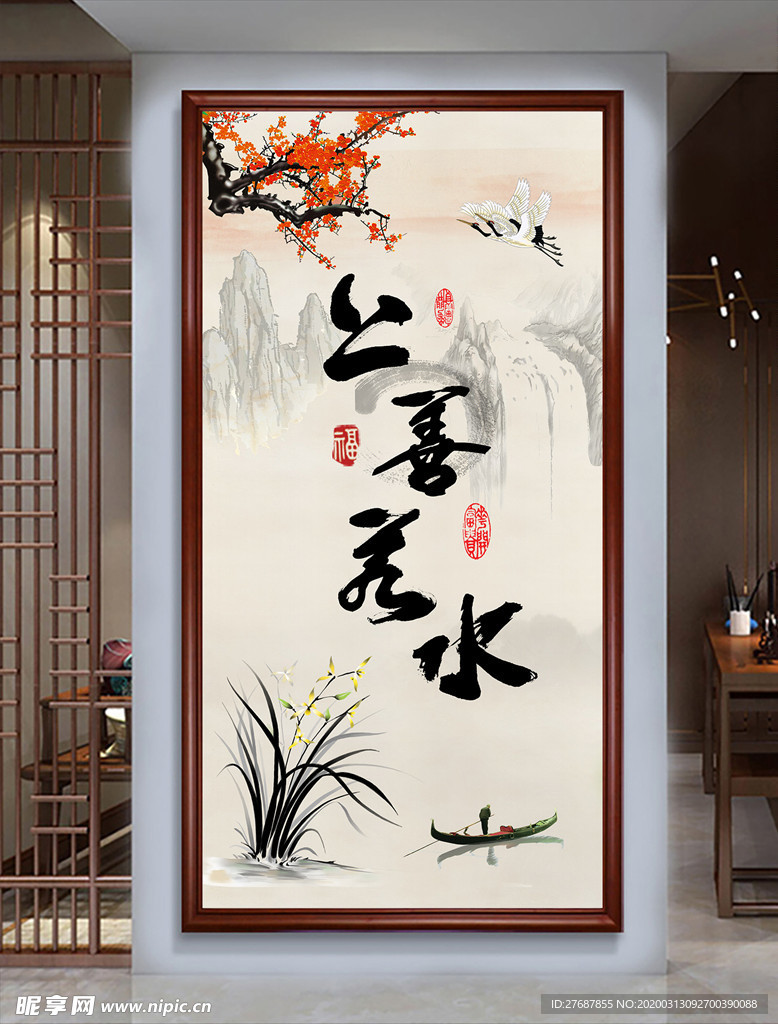 上
善
若
水
福
花開
富貴
昵享网 www.nipic.cn
ID:27687855 NO:20200313092700390088